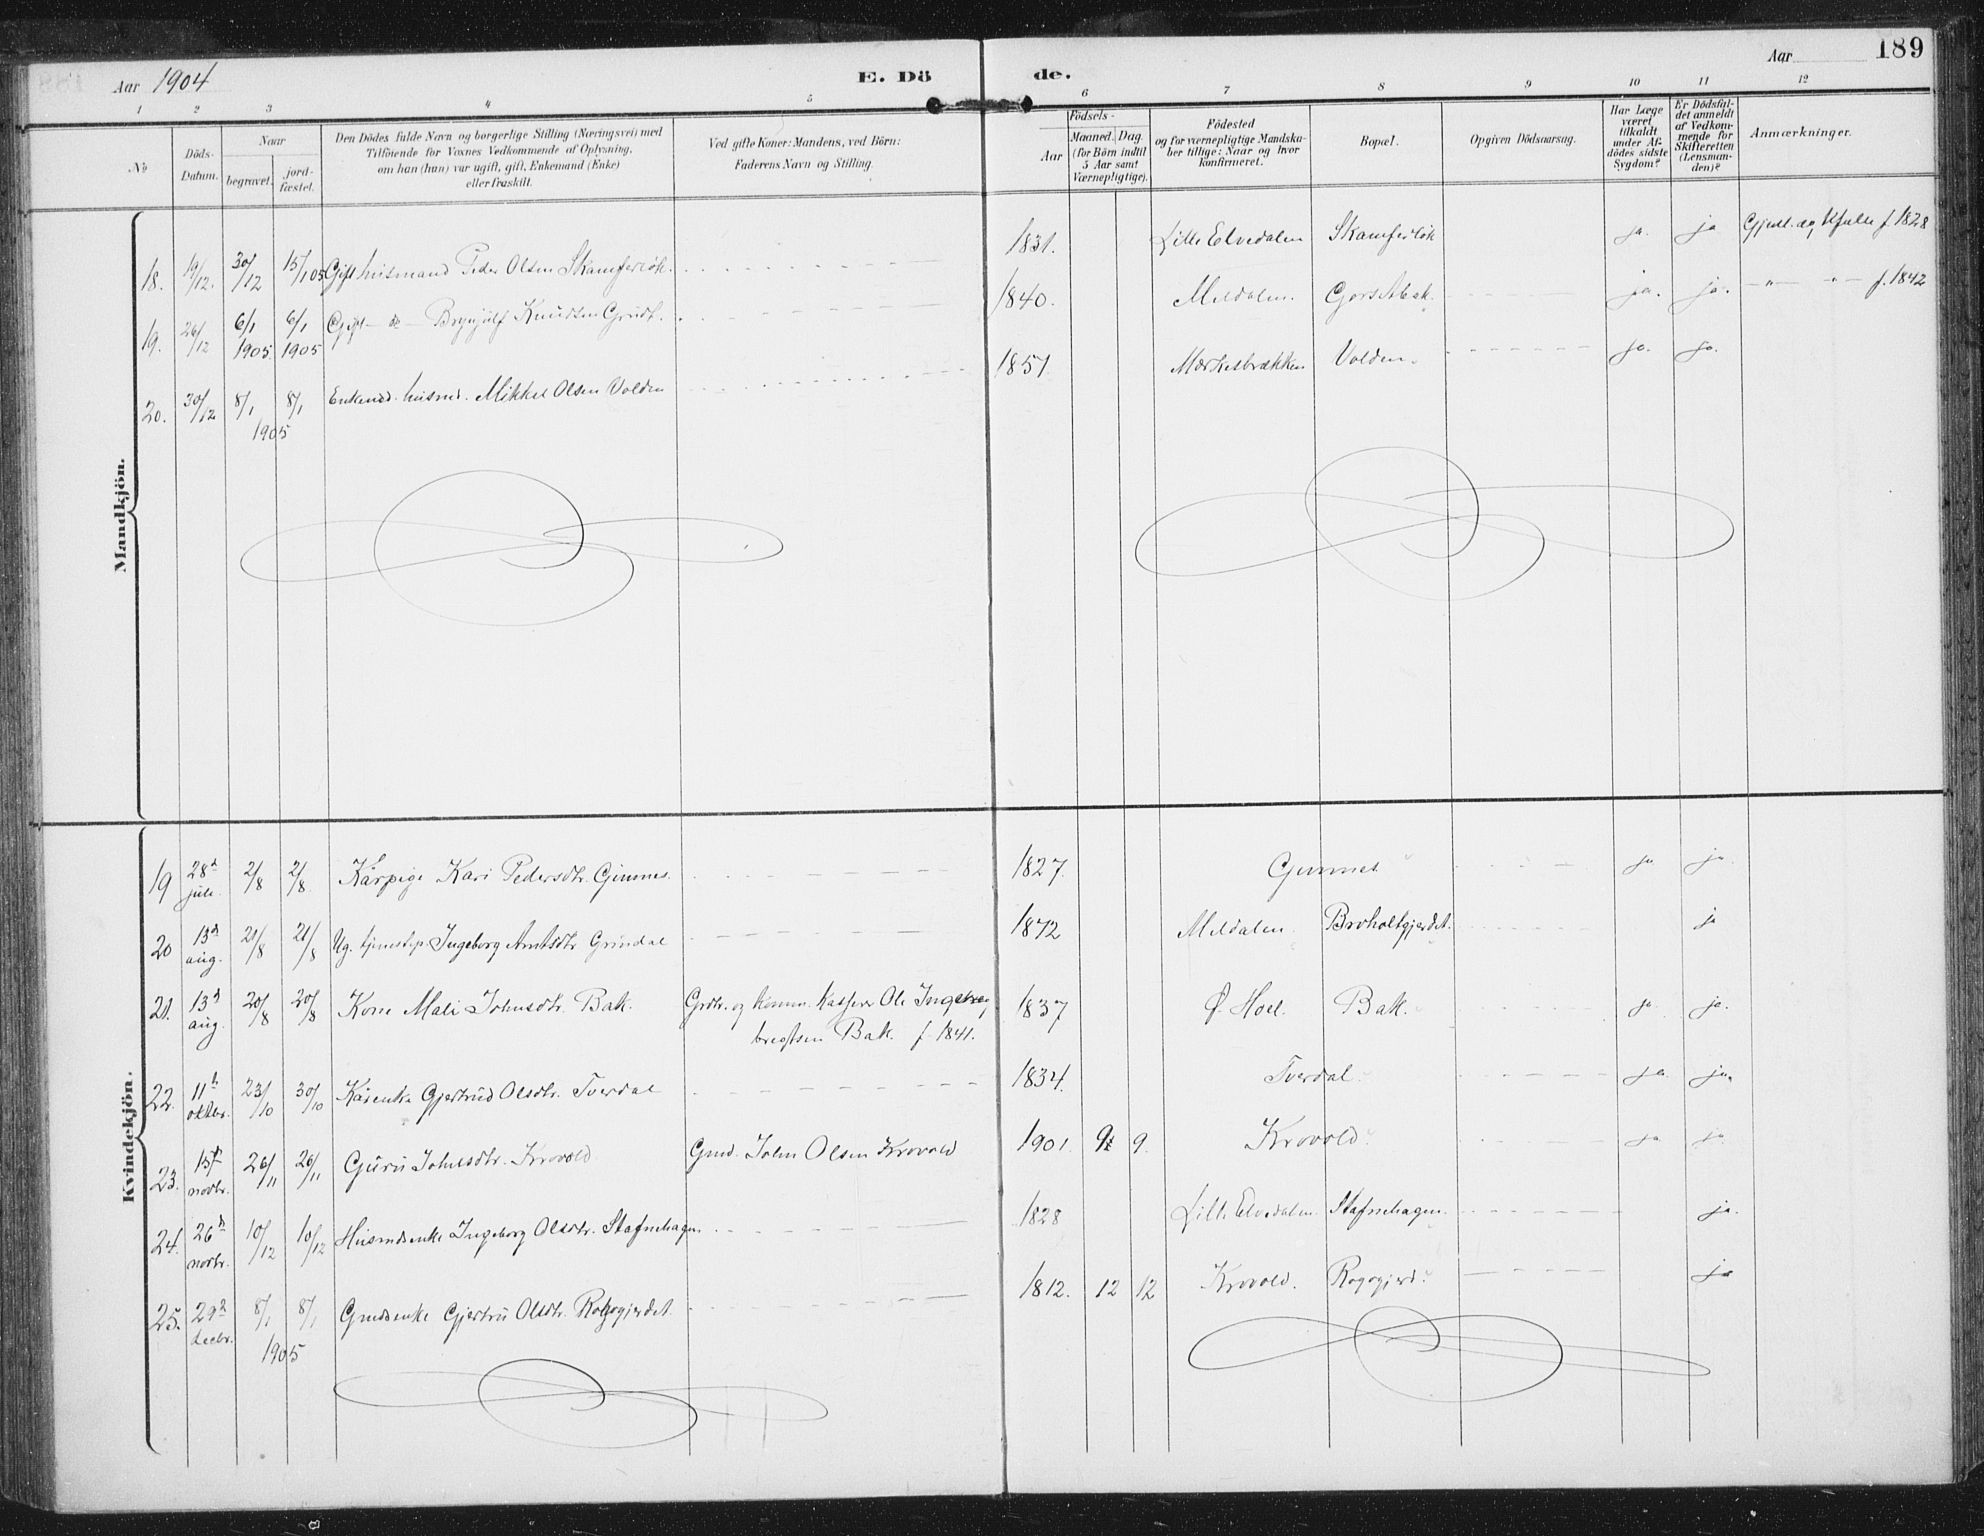 Aar 1904
E. Dö
de.
Aar
189
1 2 3 4 5 6 7 8 9 10 11 12
No
Döds-Datum.
Naar
begravet.
jord-fæstet.
Den Dödes fulde Navn og borgerlige Stilling (Næringsvei) med
Tilföiende for Voxnes Vedkommende af Oplysning,
om han (hun) var ugift, gift, Enkemand (Enke)
eller fraskilt.
Ved gifte Koner: Mandens, ved Börn:
Faderens Navn og Stilling.
Födsels-
Aar
Maaned. Dag.
(for Börn indtil
5 Aar samt
Værnepligtige).
Födested
og for værnepligtige Mandska-
ber tillige: Naar og hvor
konfirmeret.
Bopæl.
Opgiven Dödsaarsag.
Har Læge
været
tilkaldt
under Af-
dödes sidste
Sygdom?
Er Dödsfal-
det anmeldt
af Vedkom-
mende for
Skifteretten
(Lensman-
den)?
Anmærkninger.
Mandkjön.
18. 19/12. 30/12 15/1 05 Gift husmand Peder Olsen Skamferløk. 1831. Lille Elvedalen Skamferløk ja. ja f. 1828
19. 26/12 6/1 1905. 6/1 1905 Gift - do - Brynjulf Knudsen Grindt. 1840. Meldalen. ja. ja. - " - " - f. 1842
20. 30/12 8/1 8/1 1905 Enkemd. husmd. Mikkel Olsen Volden 1851. Mærkesbrækken Volden. ja. ja.
Kvindekjön.
19 28d juli. 2/8 2/8. Kårpige Kari Pedersdtr. Gimnes. 1827. Gimnes ja ja.
20 13d aug. 21/8 21/8 Ug. tjenestep. Ingeborg Arntsdtr Grindal 1872 Meldalen Broholtgjerdet. ja
21. 13d aug. 20/8 20/8 Kone Mali Johnsdtr. Bak. Grdbr. og komm. Kasserer Ole Ingebre
bregtsen Bak. f. 1841. 1837 Ø. Hoel. Bak. ja. ja.
22. 11te oktbr. 23/10 30/10 Kårenke Gjertrud Olsdtr. Tverdal 1834. Tverdal. ja. ja.
23. 15de novbr. 26/11 26/11 Guru Johnsdtr. Krovold Gmd. John Olsen Krovold 1901. 9. Krovold. ja. ja
24. 26d novbr. 10/12 10/12 Husmdsenke Ingeborg Olsdtr. Stafnehagen 1828 Lille Elvedalen. Stafnehagen. ja.
25. 29d decbr. 8/1 8/1 1905 Gmdsenke Gjertru Olsdtr. Rogogjerdet 1812. 12 12 Krovold. Rogogjerd. ja